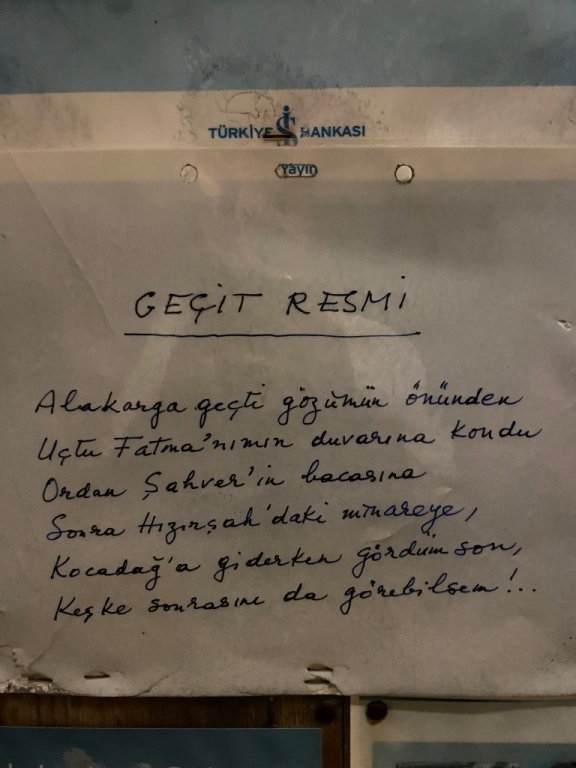 TÜRKİYE İŞ BANKASI
Yayın
GEÇİT RESMİ
Alakarga geçti gözümün önünden
Uçtu Fatma'nımın duvarına kondu
Ordan Şahver'in bacasına
Sonra Hızırşah'daki minareye,
Kocadağ'a giderken gördüm son,
Keşke sonrasını da görebilsem!..